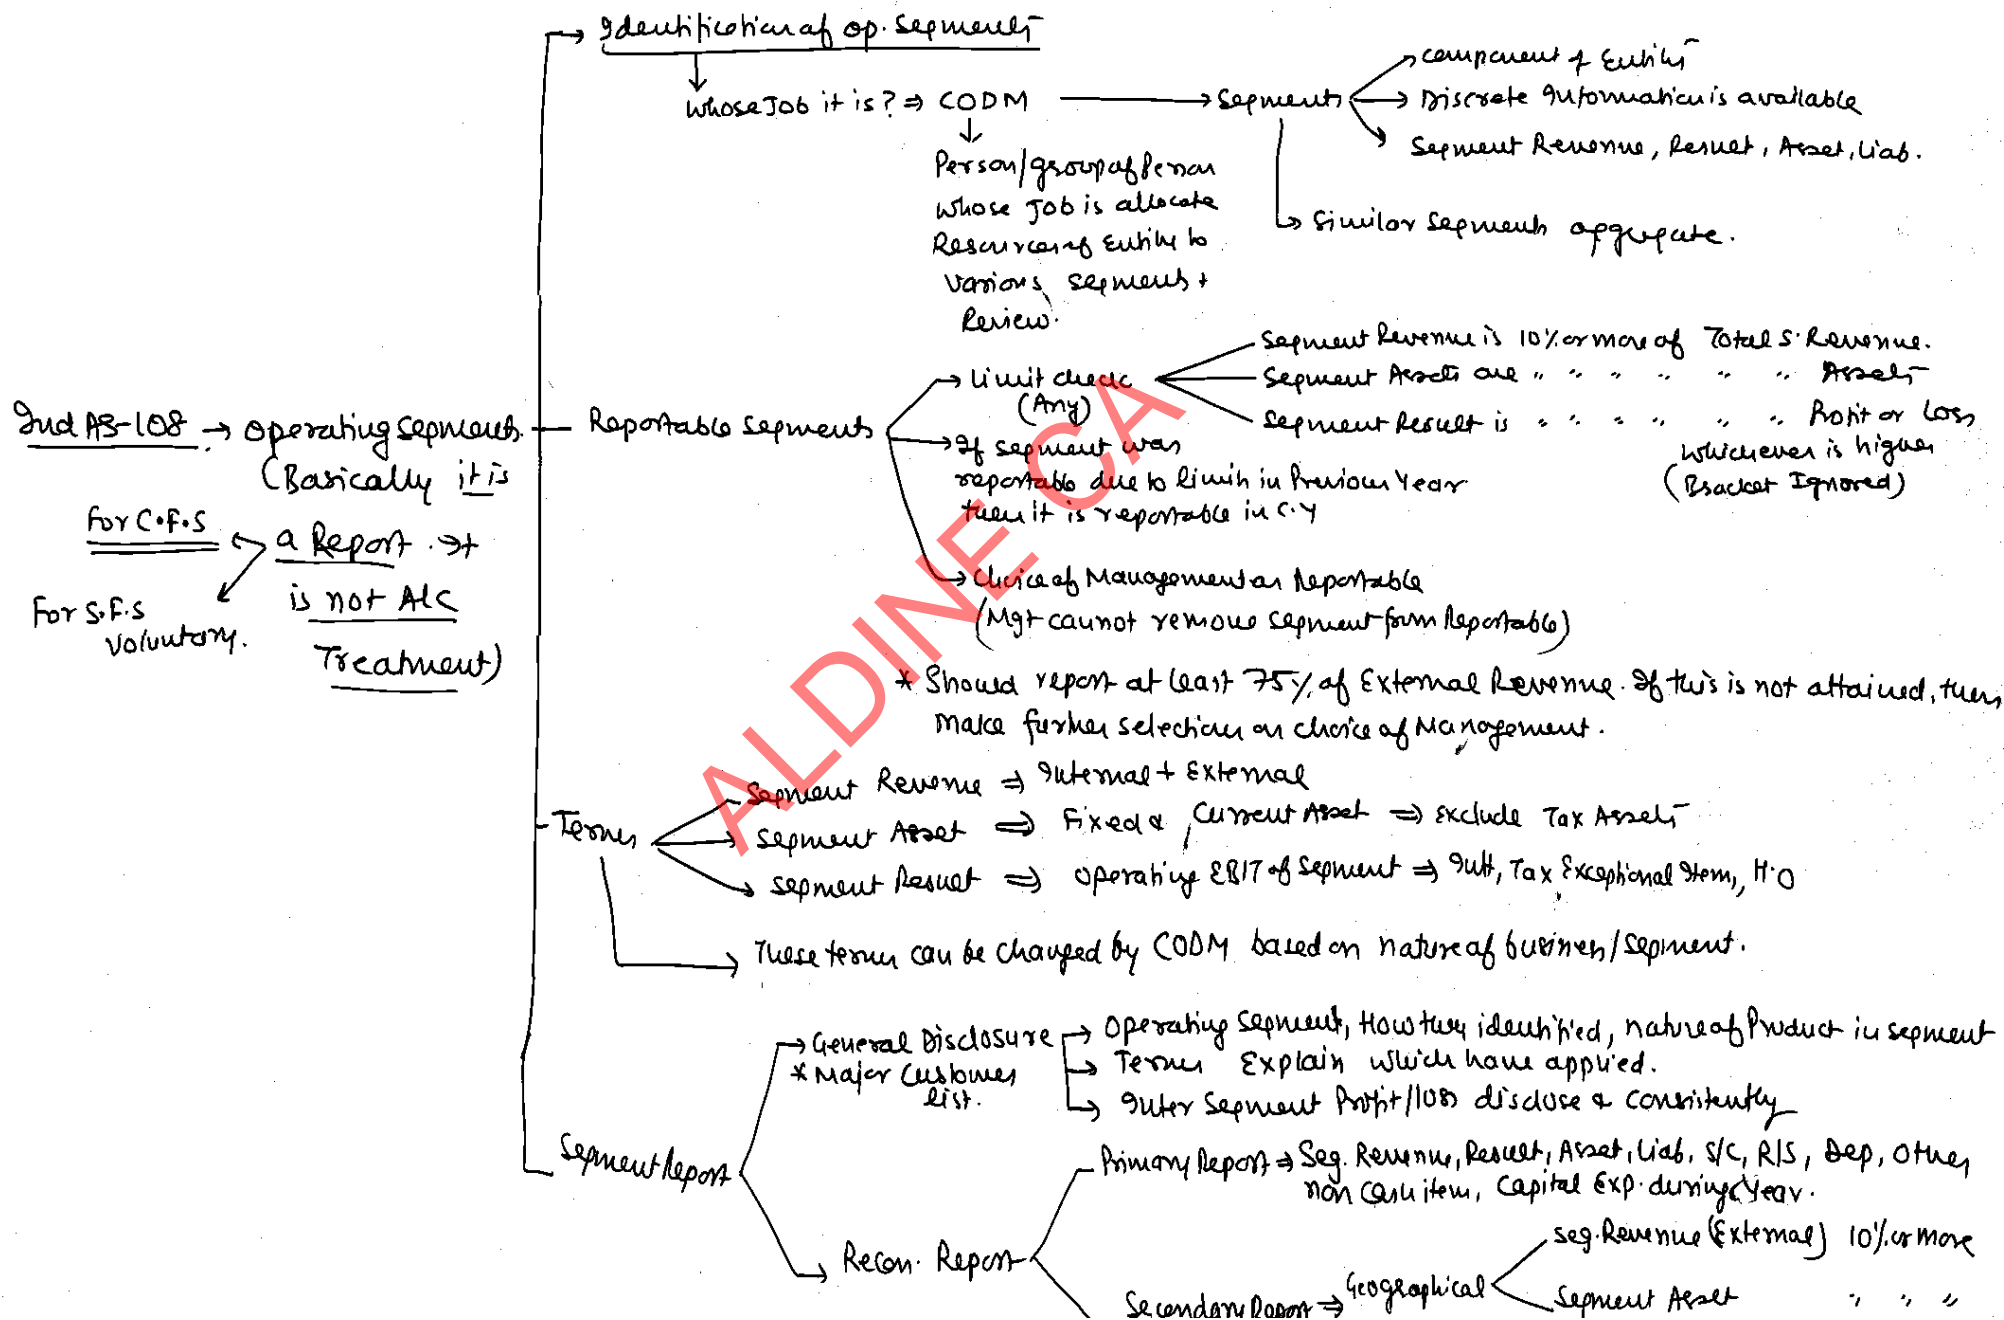 Identification of op. Segments
Whose Job it is? ⇒ CODM → Segments
→ Component of Entity
→ Discrete Information is available
→ Segment Revenue, Result, Asset, Liab.
↳ Similar Segments aggregate.
Person/group of Person
whose Job is allocate
Resources of Entity to
various segments +
Review.
Ind AS-108 → Operating Segments
(Basically it is
a Report →+
is not A/C
Treatment)
For C.F.S
For S.F.S
Voluntary.
Reportable Segments
→ Limit check
(Any)
Segment Revenue is 10% or more of Total S. Revenue.
Segment Assets are " " " " " " Assets
Segment Result is " " " " " " Profit or Loss
whichever is higher
(Bracket Ignored)
→ If segment was
reportable due to limits in Previous Year
then it is reportable in C.Y
→ Choice of Management as Reportable
(Mgt cannot remove segment from Reportable)
* Should report at least 75% of External Revenue. If this is not attained, then
make further selection on choice of Management.
Terms
Segment Revenue ⇒ Internal + External
Segment Asset ⇒ Fixed & Current Asset ⇒ Exclude Tax Assets
Segment Result ⇒ Operating EBIT of Segment ⇒ Intt, Tax Exceptional Item, H.O
→ These terms can be changed by CODM based on nature of business/segment.
Segment Report
→ General Disclosure
* Major Customer
list.
→ Operating Segment, How they identified, nature of Product in segment
→ Terms Explain which have applied.
→ Inter Segment Profit/loss disclose & consistently
→ Recon. Report
Primary Report ⇒ Seg. Revenue, Result, Asset, Liab, S/C, R/S, Dep, Other
non cash item, Capital Exp. during Year.
Secondary Report ⇒ Geographical
Seg. Revenue (External) 10% or more
Segment Asset " " "
ALDINE CA